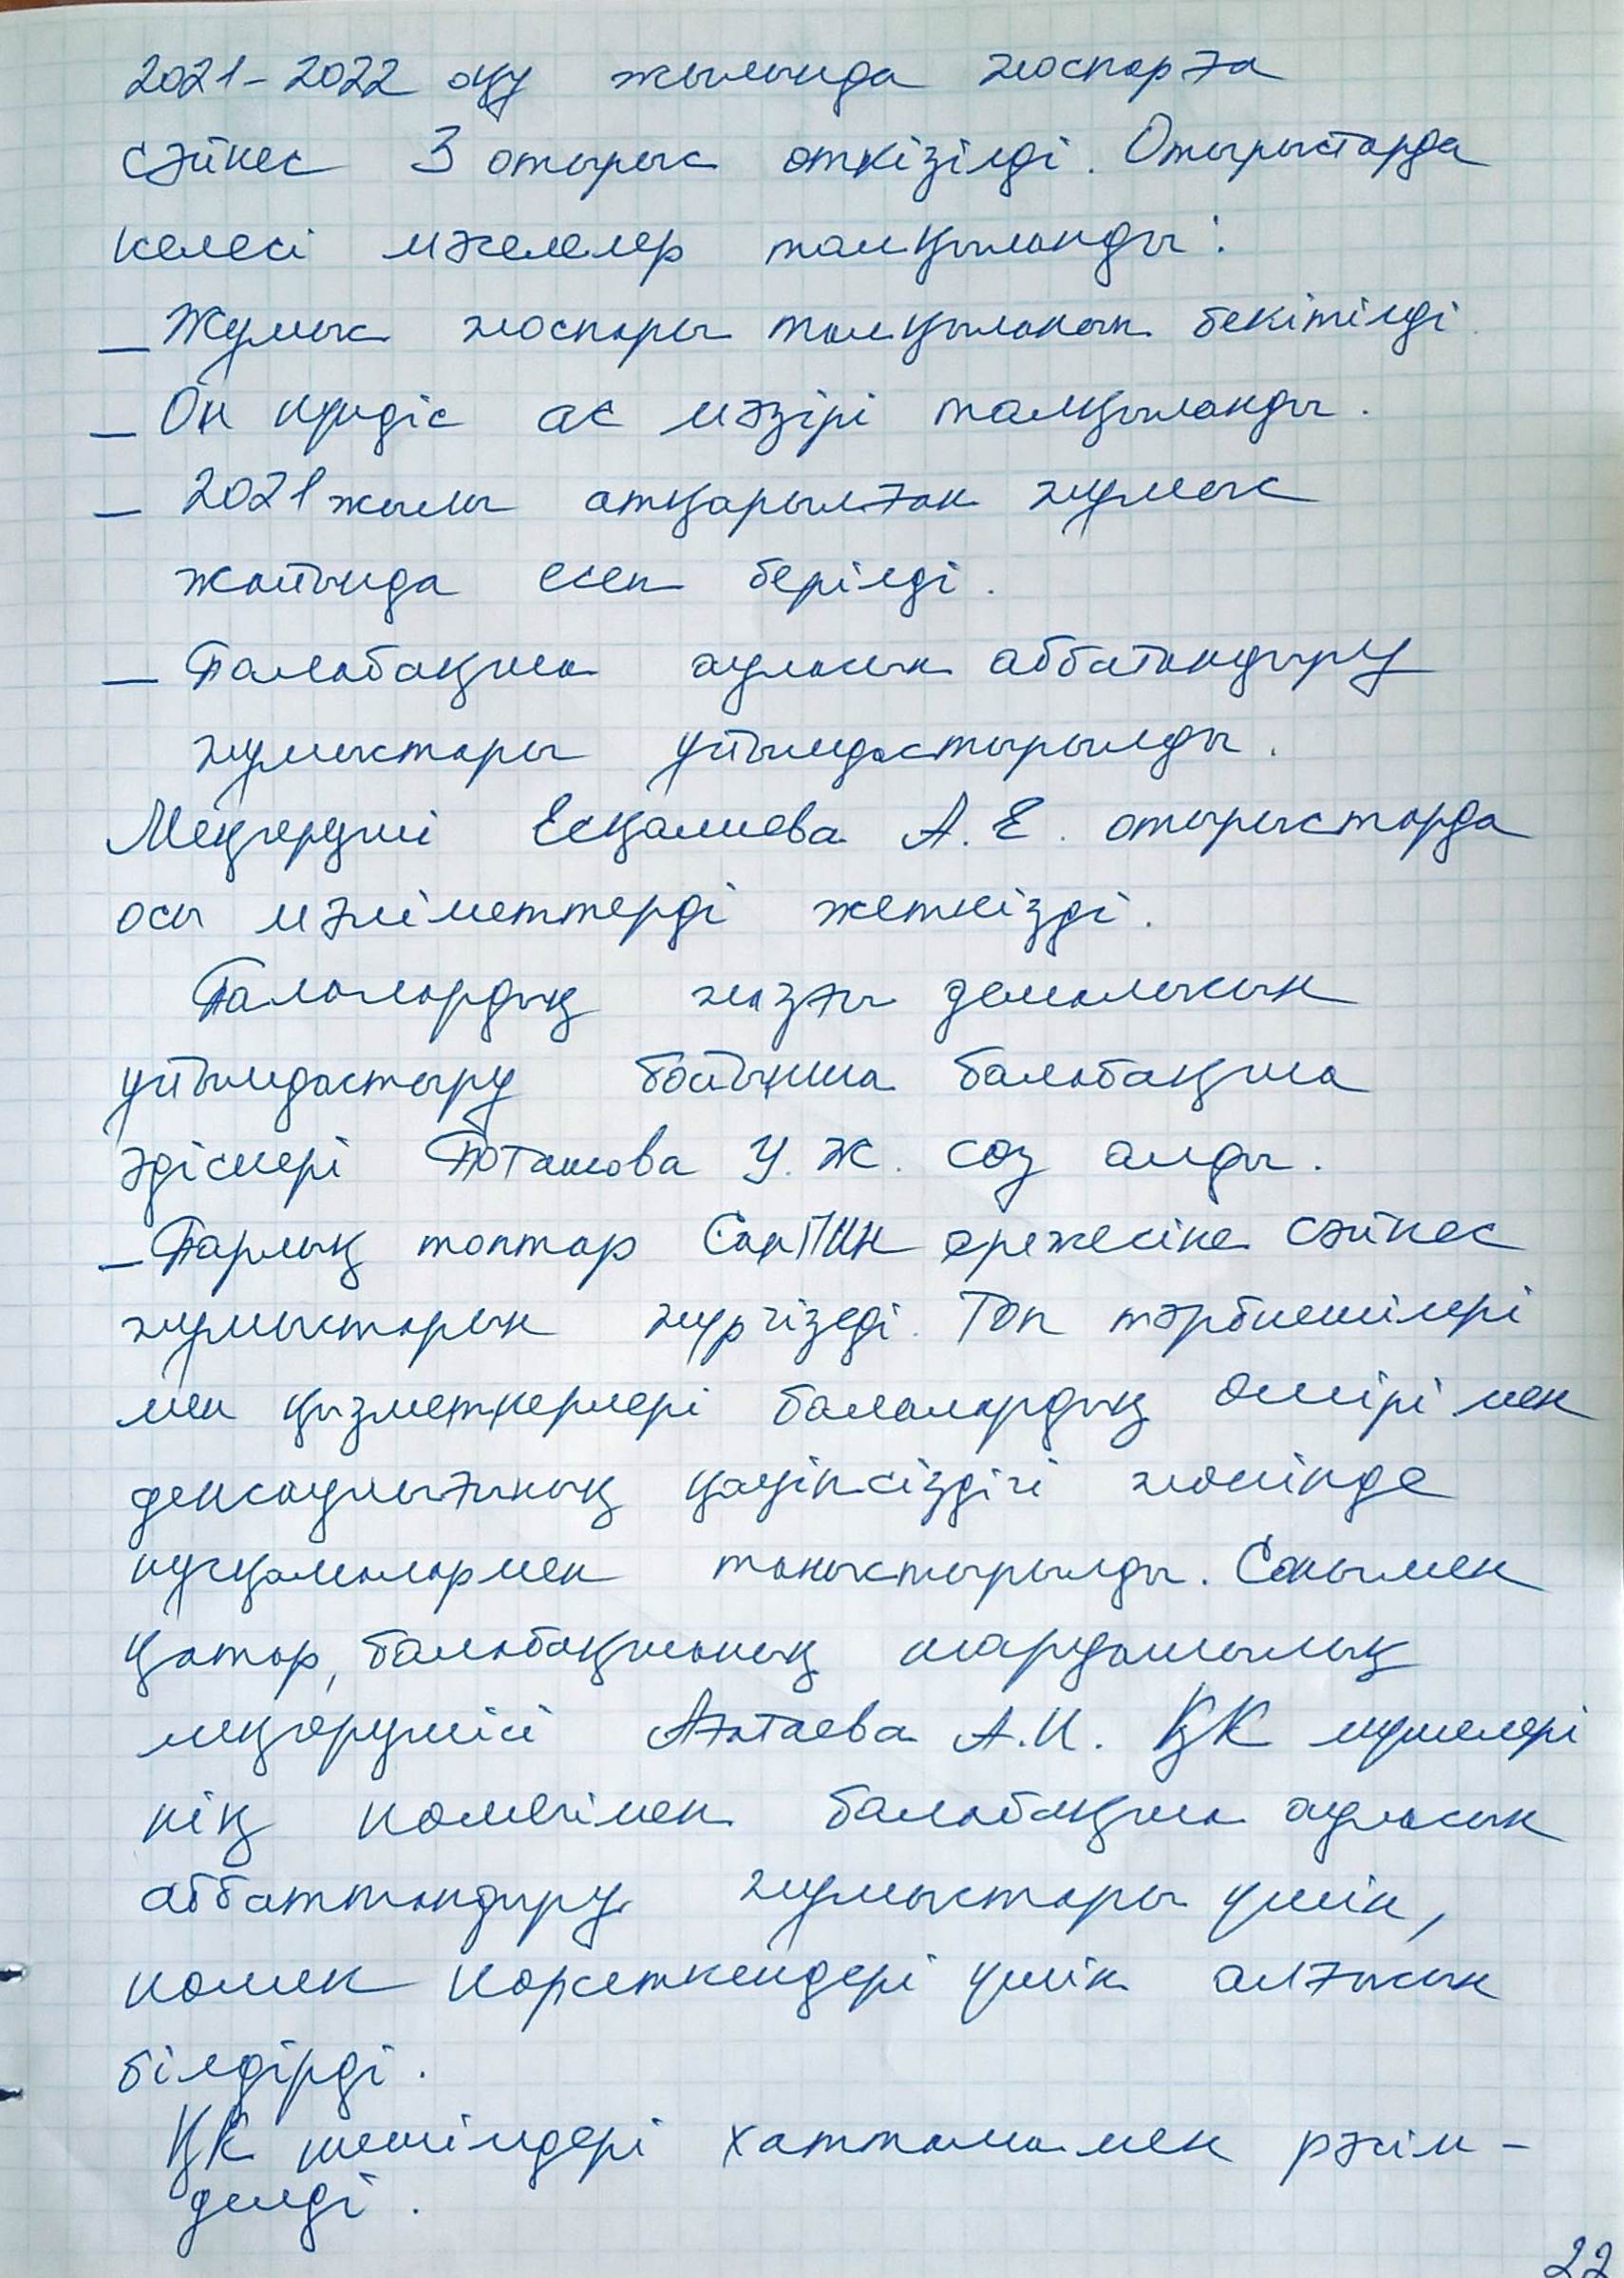 2021-2022 оқу жылында жоспарға
сәйкес 3 отырыс өткізілді. Отырыстарда
келесі мәселелер талқыланды:
– Жұмыс жоспары талқыланып бекітілді.
– Он күндік ас мәзірі талқыланды.
– 2021 жылы атқарылған жұмыс
жайында есеп берілді.
– Балабақша ауласын аббатандыру
жұмыстары ұйымдастырылды.
Меңгеруші Есқалиева А.Е. отырыстарда
осы мәліметтерді жеткізді.
Балалардың жазғы демалысын
ұйымдастыру бойынша балабақша
әдіскері Поташова У.Ж. сөз алды.
– Барлық топтар СанПин ережесіне сәйкес
жұмыстарын жүргізеді. Топ тәрбиешілері
мен қызметкерлері балалардың өмірі мен
денсаулығының қауіпсіздігі жөнінде
нұсқамалармен таныстырылды. Сонымен
қатар, балабақшаның шаруашылық
меңгерушісі Ағатаева А.И. ҚК мүшелері
нің көмегімен балабақша ауласын
аббаттандыру жұмыстары үшін,
көмек көрсеткендері үшін алғысын
білдірді.
ҚК шешімдері хаттамамен рәсім-
делді.
22